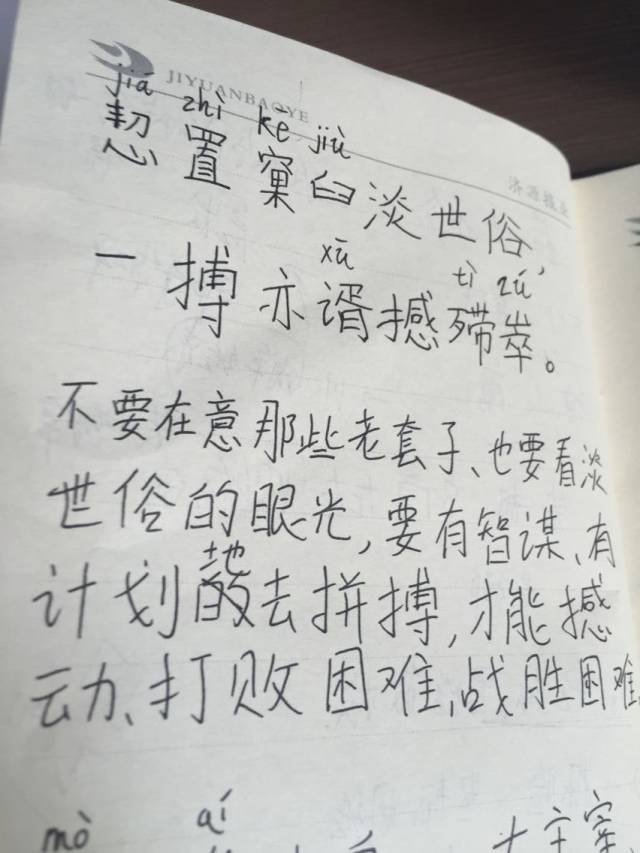 JIYUANBAOYE
济源报业
jiá zhì kē jiù
恝置窠臼淡世俗,
xū tì zú
一搏亦谞撼殢崒。
不要在意那些老套子、也要看淡
世俗的眼光,要有智谋、有
地
计划的去拼搏,才能撼
动、打败困难,战胜困难
mò ái